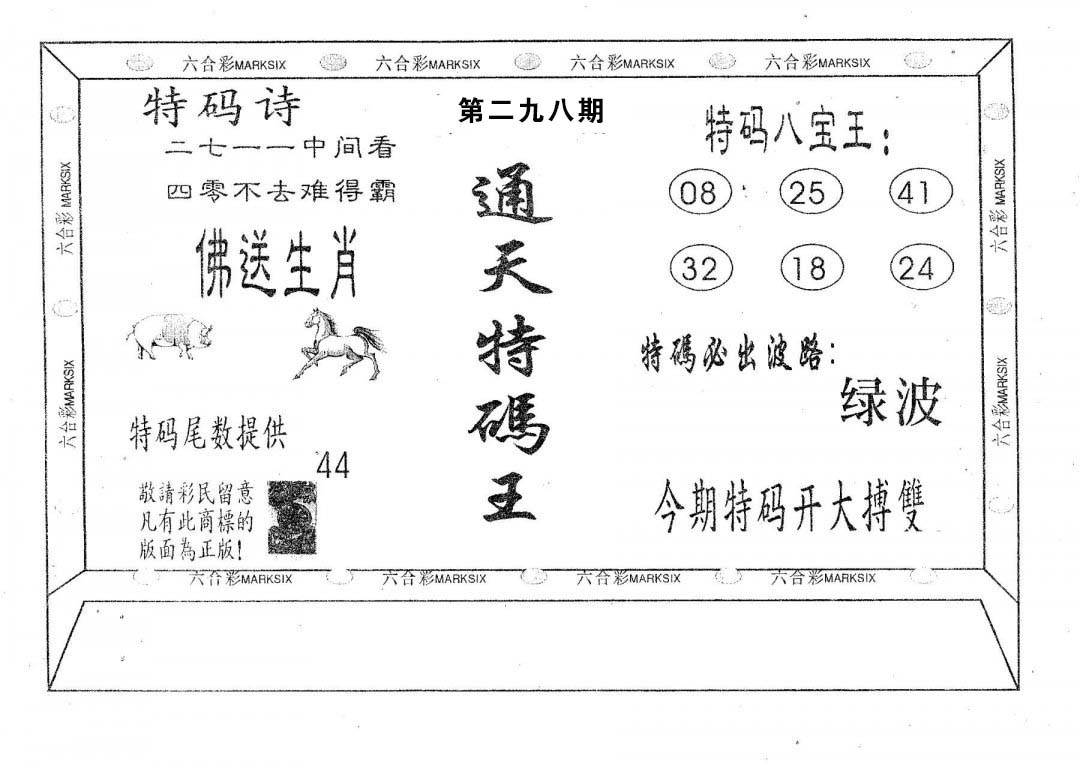 六合彩MARKSIX 六合彩MARKSIX 六合彩MARKSIX 六合彩MARKSIX
特码诗
二七一一中间看
四零不去难得霸
佛送生肖
特码尾数提供
44
敬請彩民留意
凡有此商標的
版面為正版!
第二九八期
通天特碼王
特码八宝王:
08 25 41
32 18 24
特碼必出波路:
绿波
今期特码开大搏雙
六合彩MARKSIX
六合彩MARKSIX
六合彩MARKSIX
六合彩MARKSIX
六合彩MARKSIX 六合彩MARKSIX 六合彩MARKSIX 六合彩MARKSIX